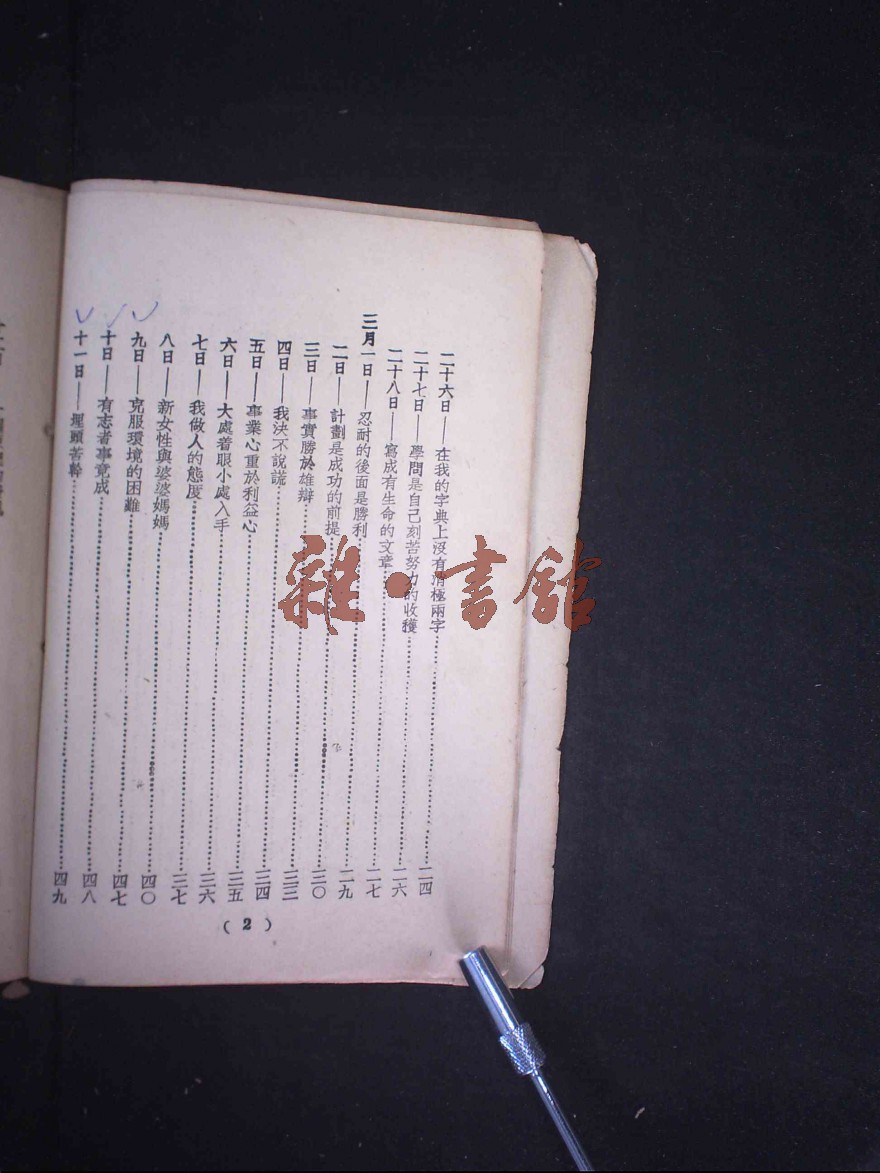 二十六日——在我的字典上沒有消極兩字……二四
二十七日——學問是自己刻苦努力的收穫……二六
二十八日——寫成有生命的文章……二七
三月一日——忍耐的後面是勝利……二九
二日——計劃是成功的前提……三〇
三日——事實勝於雄辯……三三
四日——我決不說謊……三四
五日——事業心重於利益心……三五
六日——大處着眼小處入手……三六
七日——我做人的態度……三七
八日——新女性與婆婆媽媽……四〇
九日——克服環境的困難……四七
十日——有志者事竟成……四八
十一日——埋頭苦幹……四九
( 2 )
雜·書館